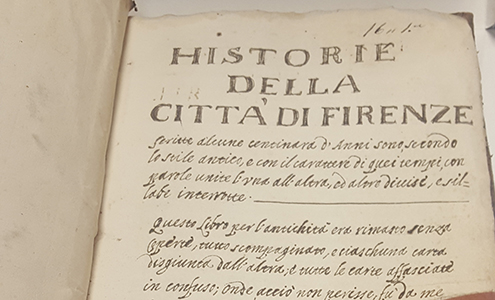 HISTORIE
DELLA
CITTÀ DI FIRENZE
scritte alcune centinara d'Anni sono, secondo
lo stile antico, e con il carattere di quei tempi, con
parole unite l'una all'altra, ed altre divise, e sil-
labe interrotte.
Questo libro per l'antichità era rimasto senza
coperte, tutto scompaginato, e ciaschuna carta
disgiunta dall'altra, e tutte le carte affasciate
in confuso; onde acciò non perisse, fù da me